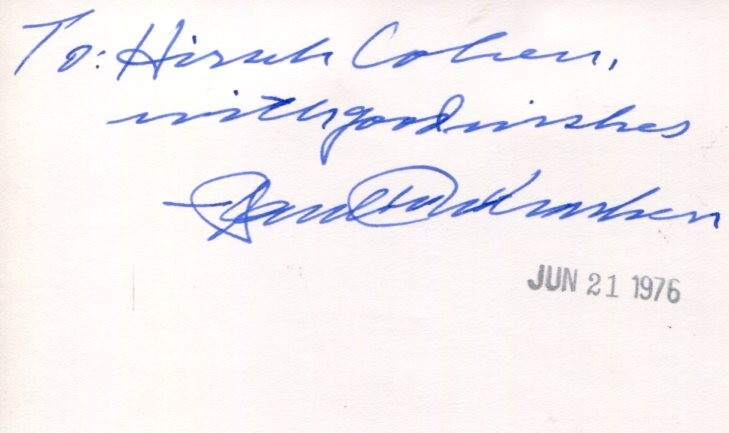 To: Hirsch Cohen,
with good wishes
JUN 21 1976